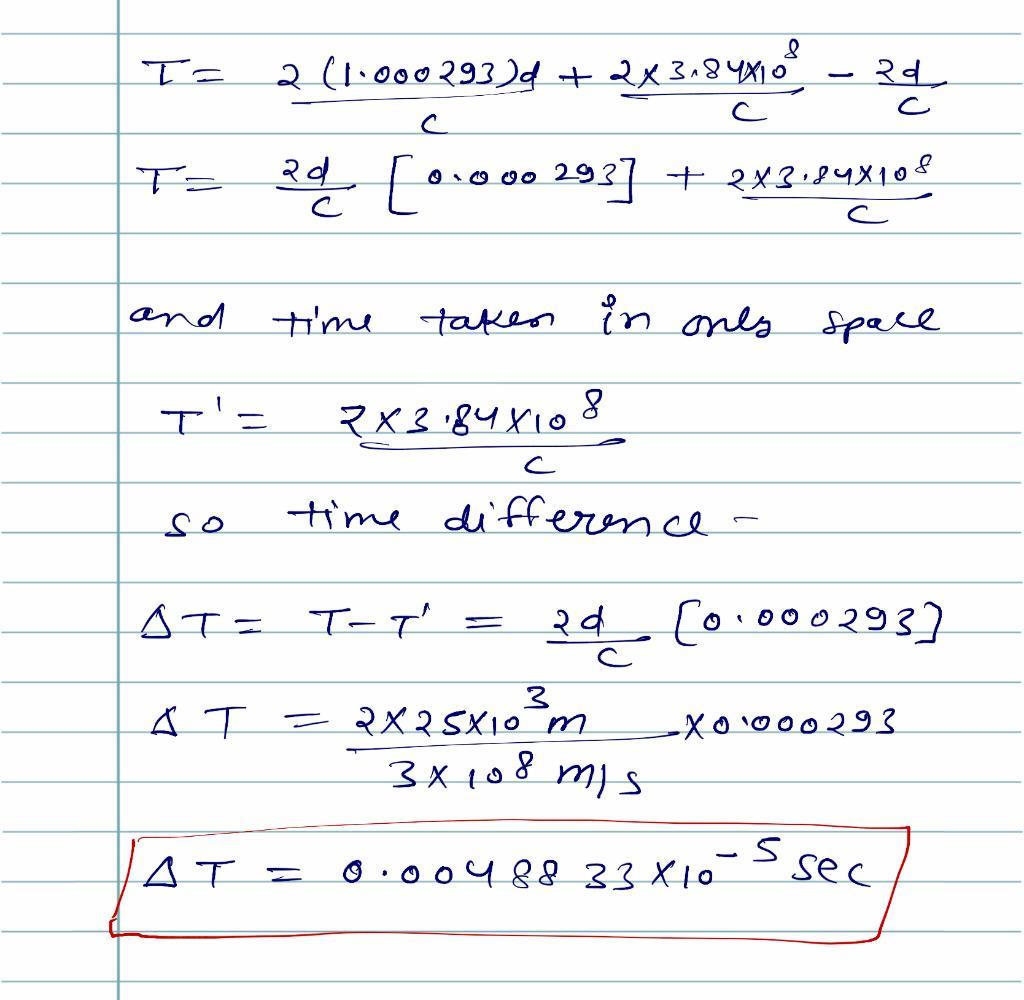 T = 2(1.000293)d/c + 2×3.84×10⁸/c − 2d/c
T = 2d/c [0.000293] + 2×3.84×10⁸/c
and time taken in only space
T' = 2×3.84×10⁸/c
so time difference -
ΔT = T-T' = 2d/c [0.000293]
ΔT = 2×25×10³m/3×10⁸ m/s ×0.000293
ΔT = 0.0048833×10⁻⁵ sec